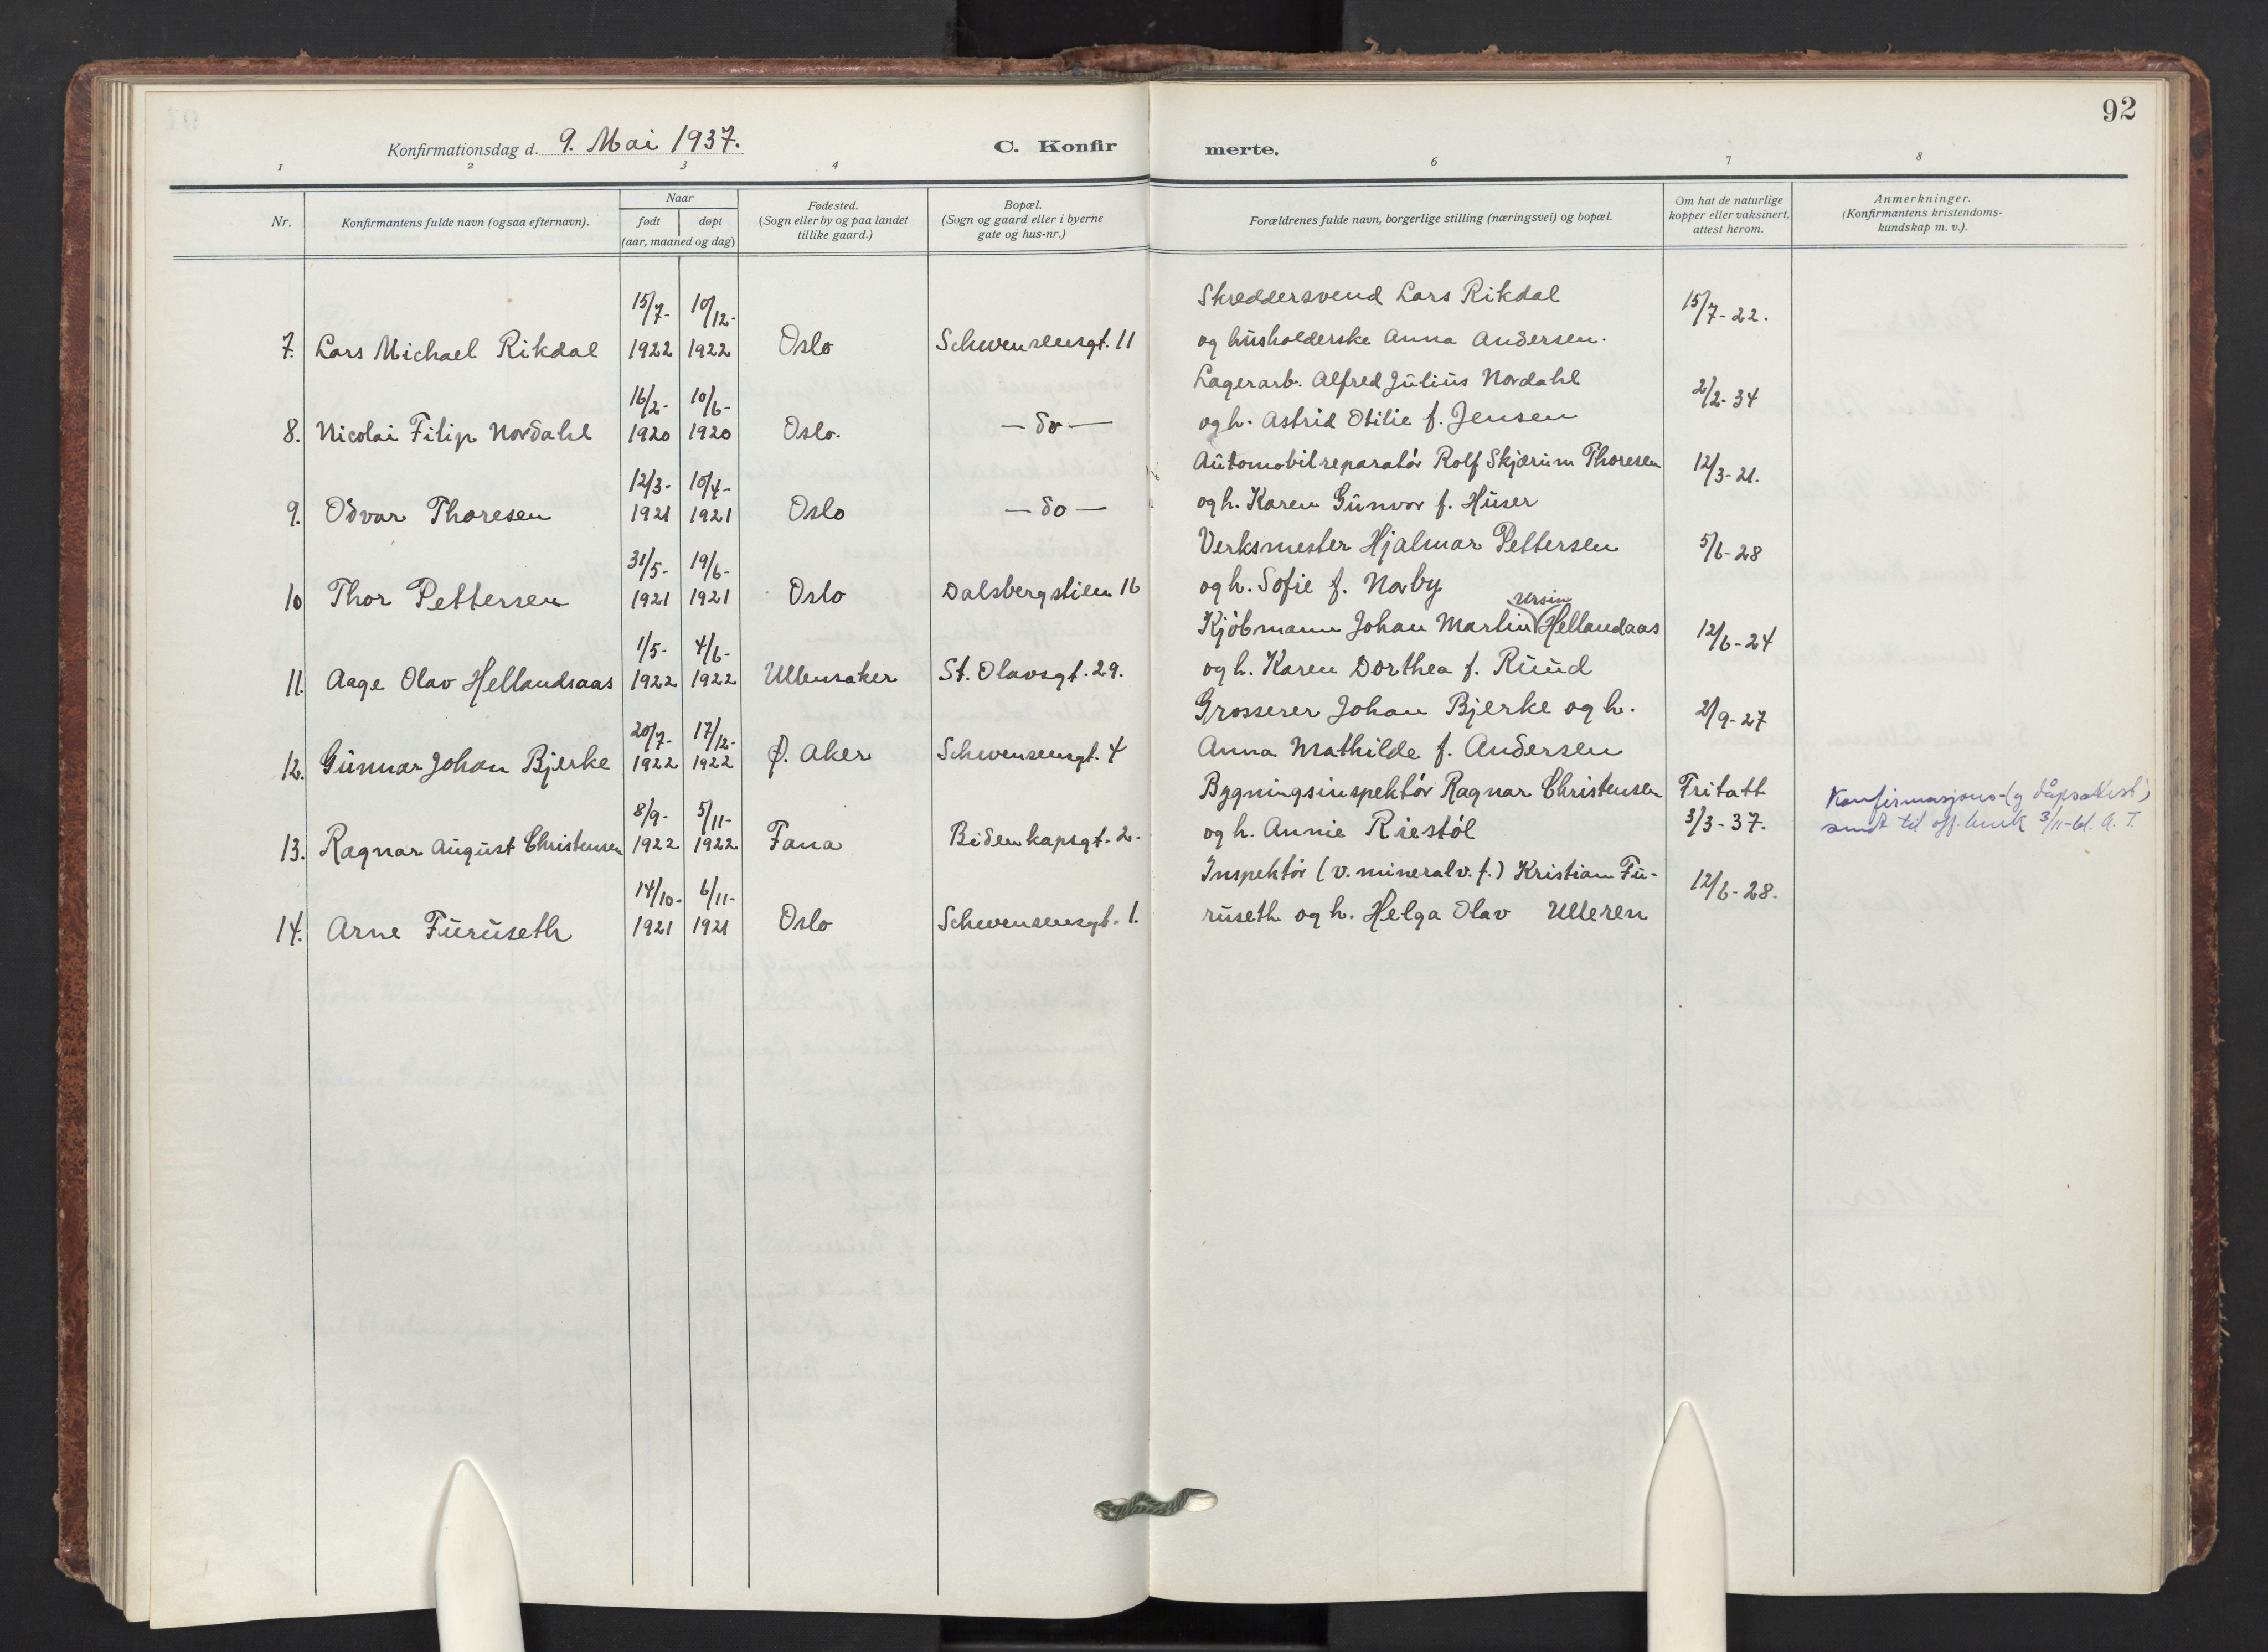 92
Konfirmationsdag d. 9. Mai 1937. C. Konfirmerte.
1 2 3 4 6 7 8
Nr. Konfirmantens fulde navn (ogsaa efternavn). Naar født døpt (aar, maaned og dag) Fødested. (Sogn eller by og paa landet tillike gaard.) Bopæl. (Sogn og gaard eller i byerne gate og hus-nr.) Forældrenes fulde navn, borgerlige stilling (næringsvei) og bopæl. Om hat de naturlige kopper eller vaksinert, attest herom. Anmerkninger. (Konfirmantens kristendoms-kundskap m. v.).
15/7- 10/12- Skreddersvend Lars Rikdal 15/7-22.
7. Lars Michael Rikdal 1922 1922 Oslo Schwensensgt. 11 og husholderske Anna Andersen.
16/2- 10/6- Lagerarb. Alfred Julius Nordahl 2/2-34
8. Nicolai Filip Nordahl 1920 1920 Oslo. — do — og h. Astrid Otilie f. Jensen
12/3- 10/4- Automobilreparatör Rolf Skjærum Thoresen 12/3-21.
9. Odvar Thoresen 1921 1921 Oslo — do — og h. Karen Gunvor f. Huser
31/5- 19/6- Verksmester Hjalmar Pettersen 5/6-28
10 Thor Pettersen 1921 1921 Oslo Dalsbergstien 16 og h. Sofie f. Norby
1/5- 4/6- Kjöbmann Johan Martin Ursin Hellandsaas 12/6-24
11. Aage Olav Hellandsaas 1922 1922 Ullensaker St. Olavsgt. 29. og h. Karen Dorthea f. Ruud
20/7- 17/12- Grosserer Johan Bjerke og h. 2/9-27
12. Gunnar Johan Bjerke 1922 1922 Ø. Aker Schwensensgt. 4 Anna Mathilde f. Andersen
8/9- 5/11- Bygningsinspektör Ragnar Christensen Fritatt Konfirmasjons- (g dåpsattest)
13. Ragnar August Christensen 1922 1922 Fana Bidenkapsgt. 2. og h. Annie Riestöl 3/3-37. sendt til off. bruk 3/11-61. A. T.
14/10- 6/11- Inspektör (v. mineralv. f.) Kristian Fu- 12/6-28.
14. Arne Furuseth 1921 1921 Oslo Schwensensgt. 1. ruseth og h. Helga Olav Ulleren